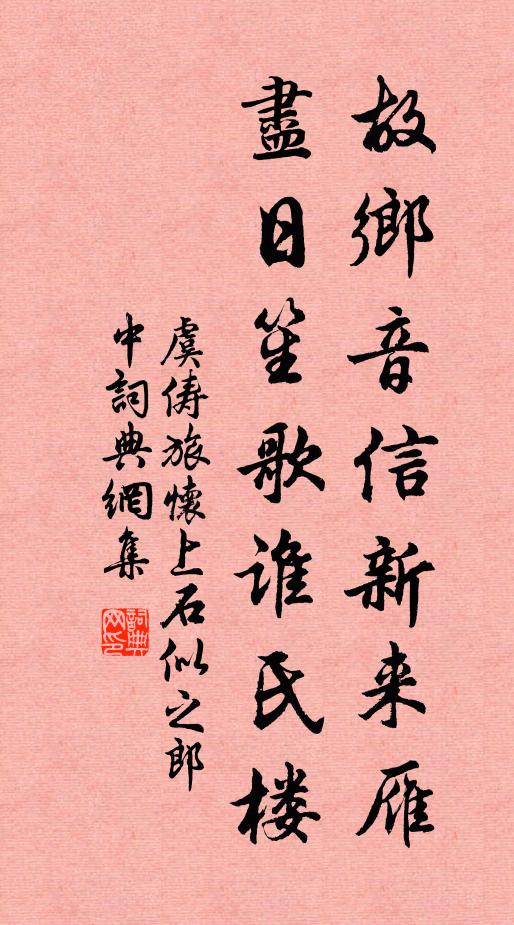 故鄉音信新来雁
盡日笙歌谁氏楼
虞儔旅懷上石似之郎
中詞典網集
詞典网印